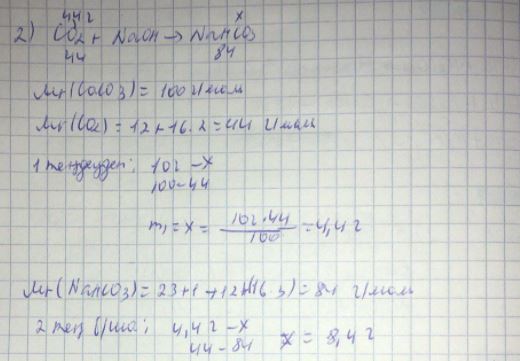 4,4г x
2) CO2 + NaOH → NaHCO3
44 84
Mr(CaCO3) = 100 г/моль
Mr(CO2) = 12 + 16·2 = 44 г/моль
1 теңдеуден: 10г – x
100 – 44
m1 = x = 10г·44 / 100 = 4,4 г
Mr(NaHCO3) = 23 + 1 + 12 + (16·3) = 84 г/моль
2 тең 4,4г – x
44 – 84 x = 8,4 г